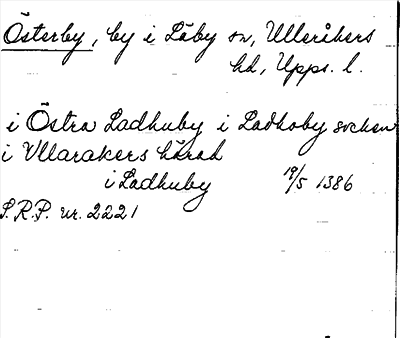 Österby, by i Läby sn, Ulleråkers
hd, Upps. l.
i Östra Ladhuby i Ladhoby sochen
i Vllarakers härad
i Ladhuby 19/5 1386
S.R.P. nr. 2221